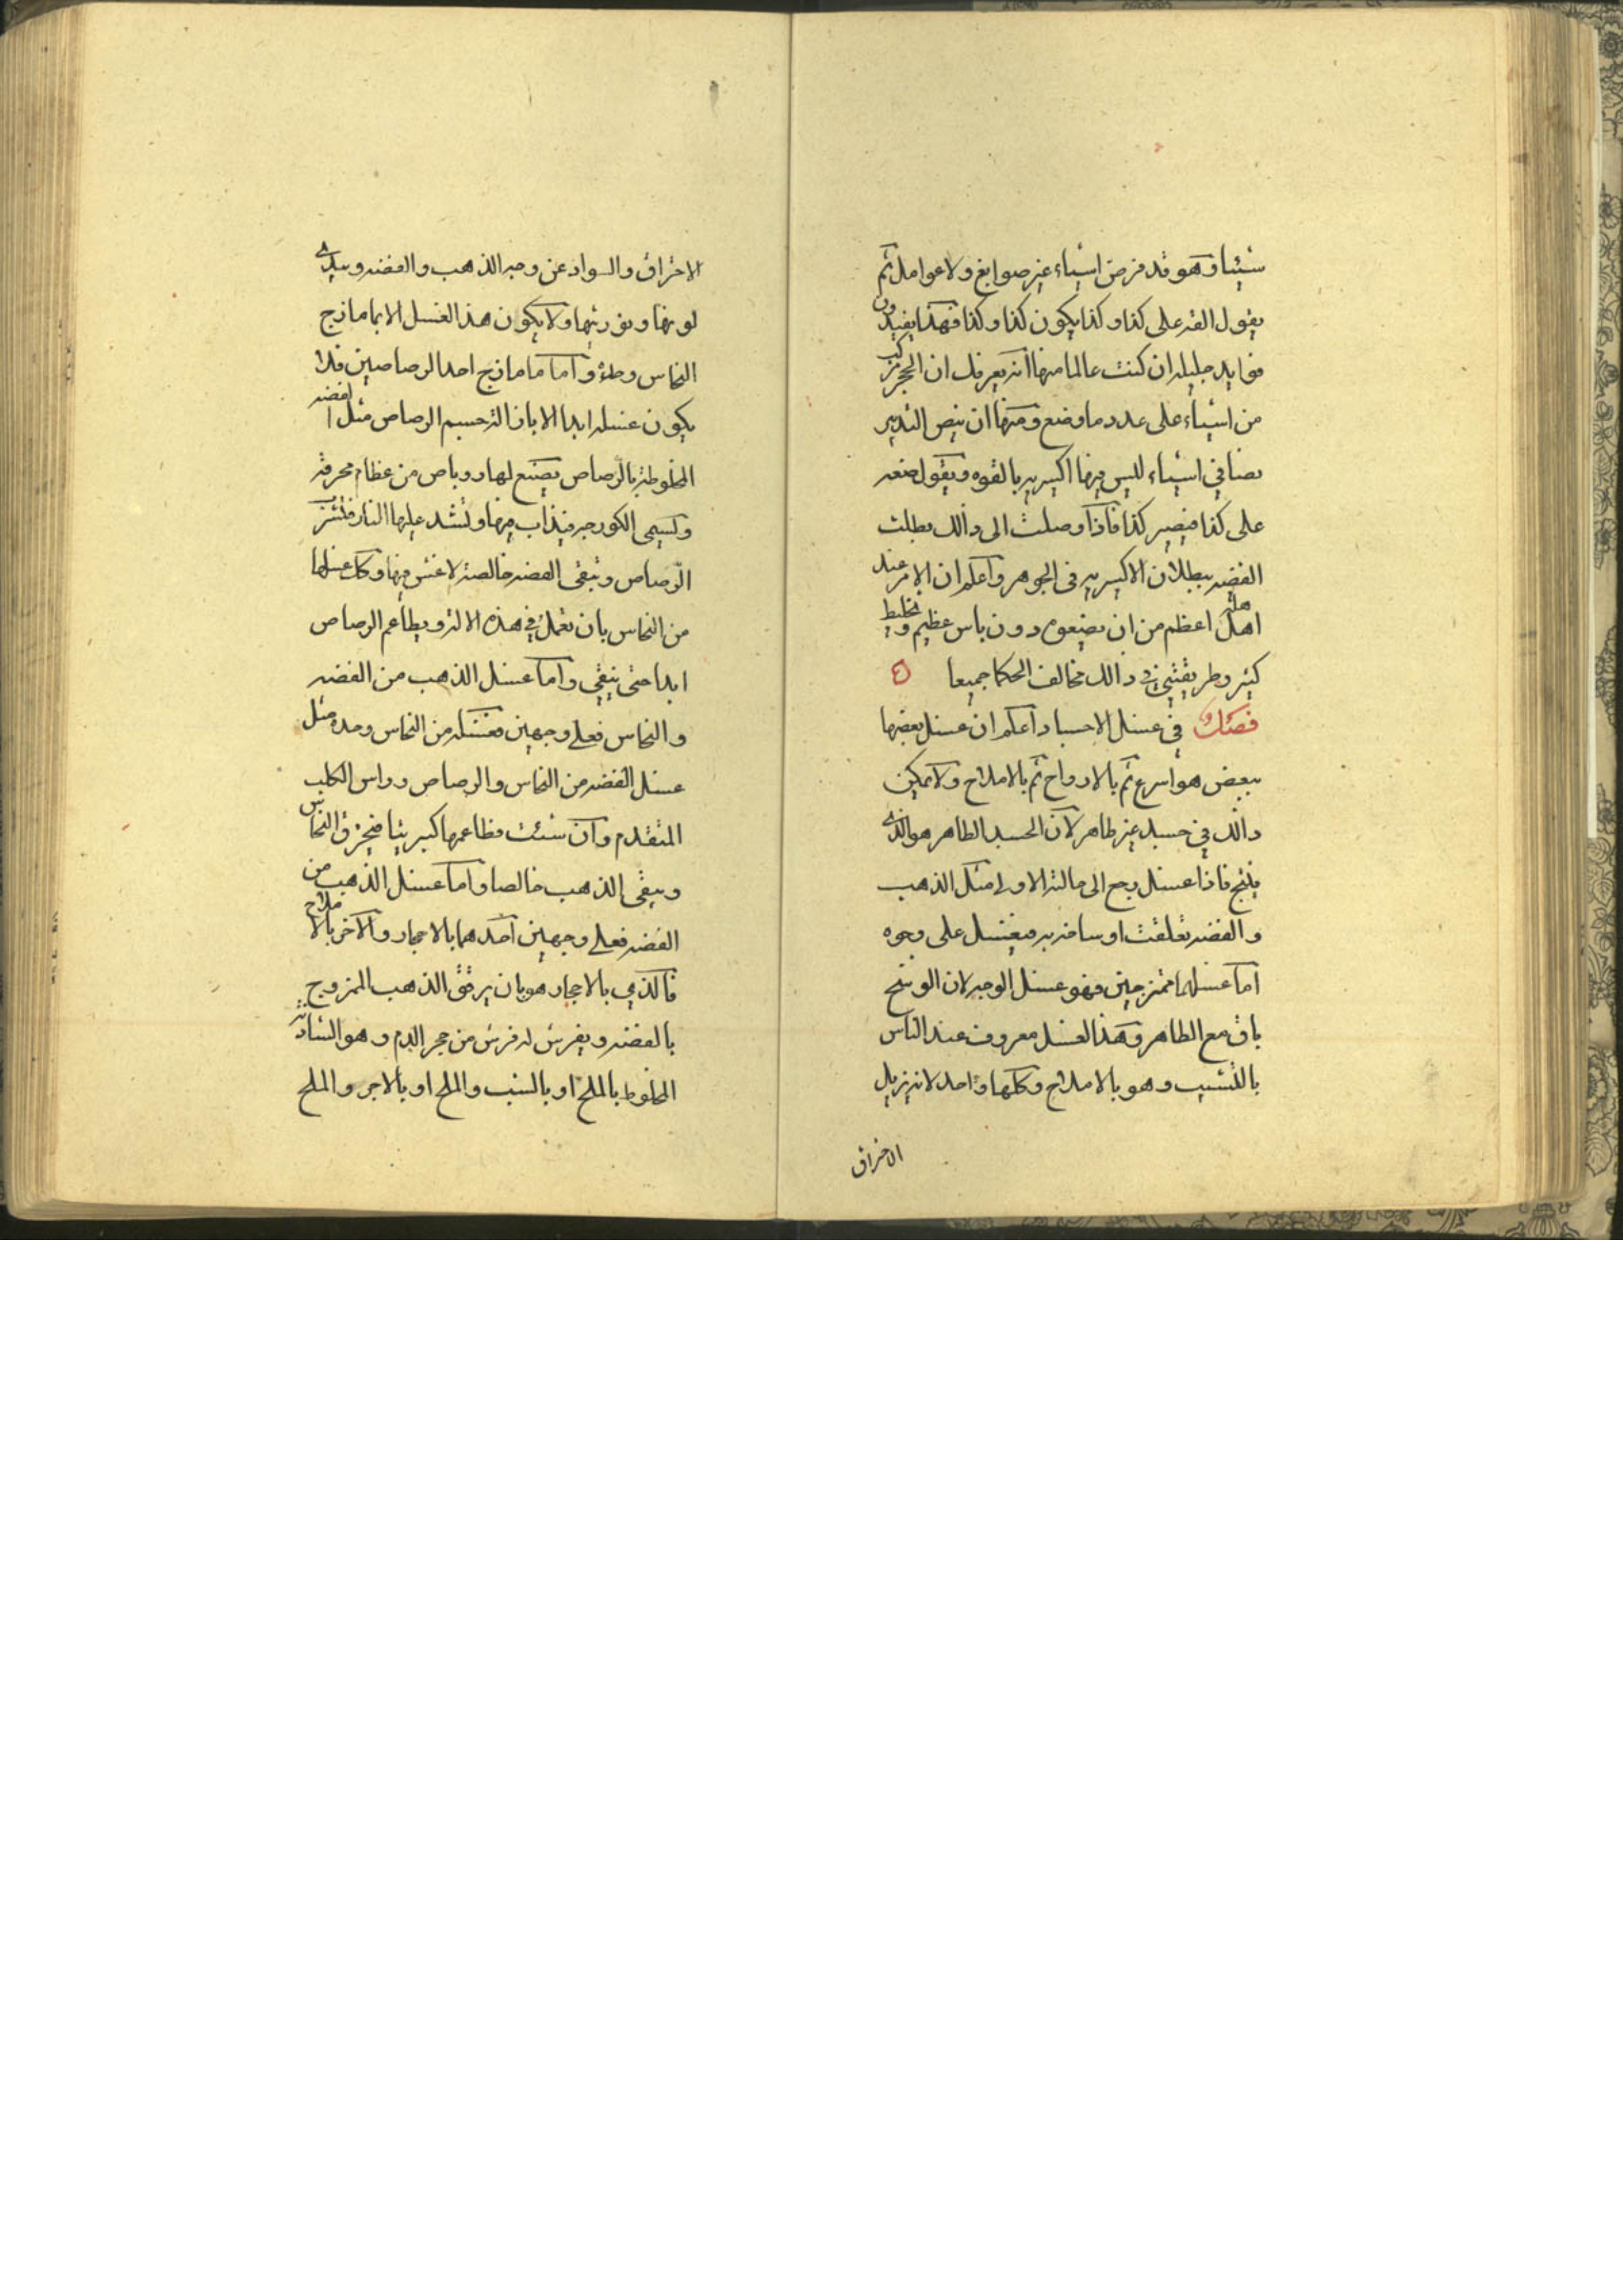 شيئا وهو قد فرض اشياء غير صوابغ ولا عوامل ثم
يقول القه على كذا وكذا يكون كذا وكذا فهذا يفيدون
فوايد جليله ان كنت عالما منها انه يعرفك ان الحجر مركب
من اشياء على عدد ما وضع ومنها ان ينص التدبير
نصا في اشياء ليس فيها اكسيريه بالقوه ويقول ضعه
على كذا فيصير كذا فاذا وصلت الى ذالك بطلت
القضيه ببطلان الاكسيريه فى الجوهر واعلم ان الامر عند
اهله اعظم من ان يضيعوه دون باس عظيم وتخليط
كثير وطريقتي في ذالك مخالف الحكما جميعا ه
فصل في غسل الاجساد اعلم ان غسل بعضها
ببعض هو اسرع ثم بالارواح ثم بالاملاح ولا يمكن
ذالك في جسد غير طاهر لان الجسد الطاهر هو الذى
فاذا غسل رجع الى حالته الاولى مثل الذهب
والفضه تعلقت اوساخ به فيغتسل على وجوه
اما غسلهما ممتزجين فهو غسل الوجه لان الوسخ
باق مع الطاهر وهذا الغسل معروف عند الناس
بالتشبيب وهو بالاملاح وكلها واحد لانه يزيل
الاحراق
الاحراق والسواد عن وجه الذهب والفضه ويبدى
لونها ونوريتها ولا يكون هذا الغسل الا بما مازج
النحاس وطئ واما ما مازج احد الرصاصين فلا
يكون غسله ابدا الا بازالة جسم الرصاص مثل الفضه
المخلوطة بالرصاص يصنع لها روباص من عظام محرقه
وتسمى الكورجه فيذاب فيها وتشد عليها النار فتشرب
الرصاص وتبقى الفضه خالصة لا غش فيها وكك غسلها
من النحاس بان تعمل في هذه الالة ويطاعم الرصاص
ابدا حتى ينقي واما غسل الذهب من الفضه
والنحاس فعلى وجهين فغسله من النحاس وحده مثل
غسل الفضه من النحاس والرصاص وراس الكلب
المتقدم وان شئت فطاعمها كبريتا فيحرق النحاس
ويبقى الذهب خالصا واما غسل الذهب من
الفضه فعلى وجهين احدهما بالاحجار والآخر بالاملاح
فالذي بالاحجار هو بان يرقق الذهب الممزوج
بالفضه ويفرش له فرش من حجر الدم وهو الشاذنه
المخلوط بالملح او بالشب والملح او بالاجر والملح